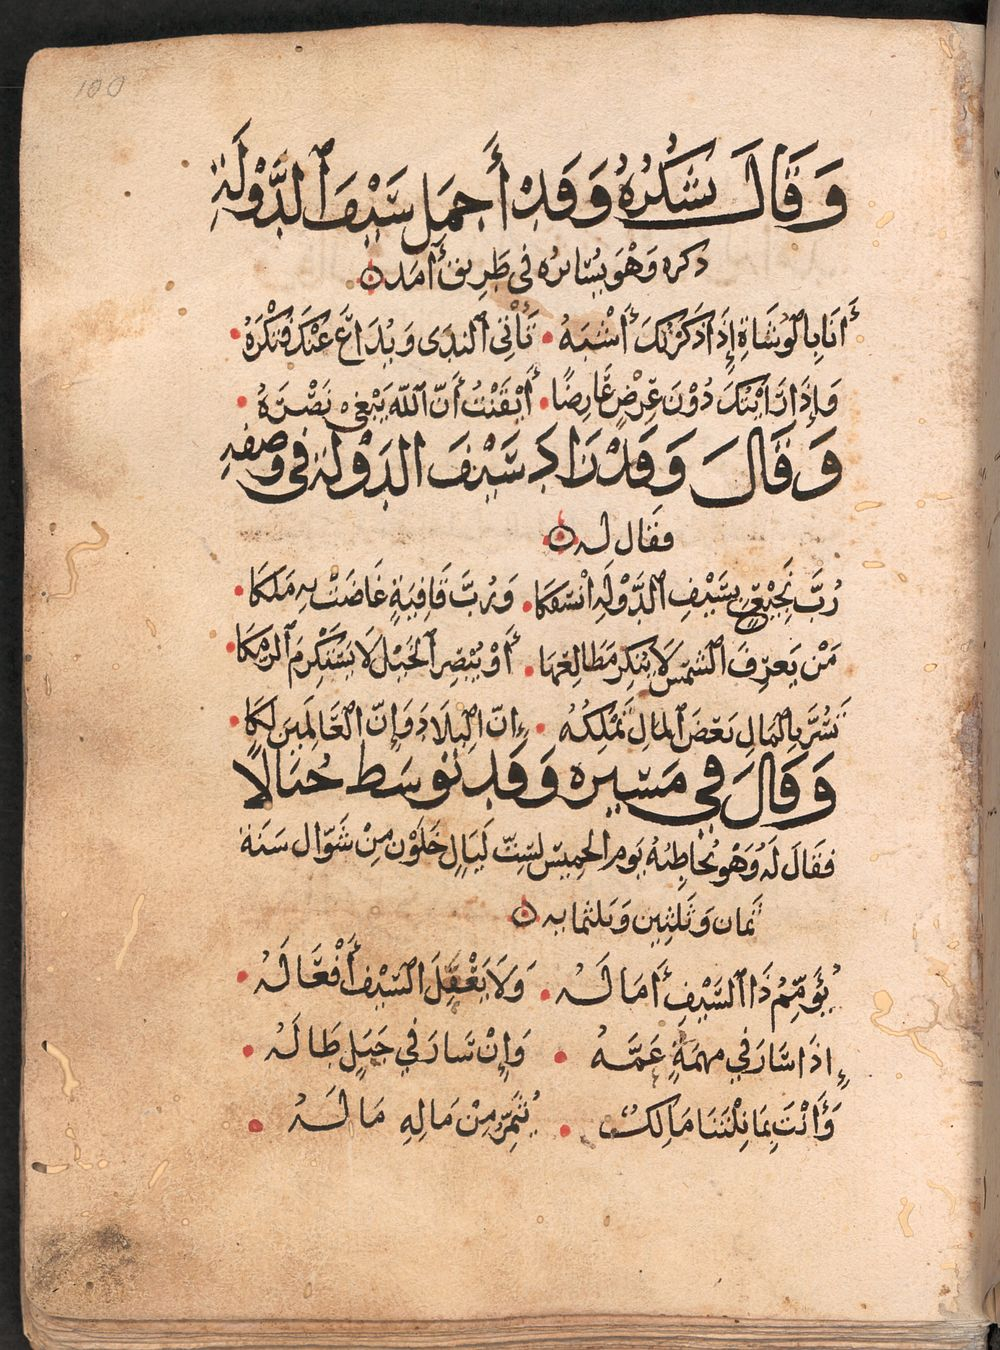 100
وَقَالَ يَشْكُرُهُ وَقَدْ أَجْمَلَ سَيْفُ الدَّوْلَةِ
ذكره وَهْوَ يُسَايرُهُ فى طَرِيقِ آمَدَ ه
أَنَا بِالْوُشَاةِ إِذَا ذَكَرْتُكَ أَشْبَهُ ۰ تَأْتِى النَدَى وَيُذَاعُ عَنْكَ فَتَكْرَهُ ۰
وَإِذَا رَأَيْتُكَ دُوْنَ عِرْضٍ عَارِضًا ۰ أَيْقَنْتُ أَنَّ اللّهَ يَبْغِى نَصْرَهُ ۰
وَقَالَ وَقَدْ زَادَ سَيْفُ الدَوْلَةِ فى وَصفهِ
فقَال لَه ه
رُبَّ نَجِيْعٍ بِسَيْفِ الدَّوْلَةِ انْسَفَكَا ۰ وَرُبَّ قَافِيَةٍ غَاضَتْ بِهِ مَلَكَا ۰
مَنْ يَعرِفِ الشَمْسَ لَا يُنْكِرْ مَطَالِعَهَا ۰ أَوْ يُبْصِرِ الْخَيْلَ لَا يَسْتَكْرِمِ الرَمَكَا ۰
تَسُرُّ بِالْمَالِ بَعْضَ الْمَالِ تَمْلِكُهُ ۰ إِنّ الْبِلَادَ وَإِنّ الْعَالَمِينَ لَكَا
وَقَالَ فى مَسِيْرِهِ وَقَدْ تَوَسَّطَ جبَالًا
فقَالَ لَهُ وَهْوَ يُخَاطِبُهُ يَوم الخميس لِسِتِّ لَيَالٍ خَلَوْن مِنْ شَوّال سَنَةَ
ثمان وَثَلثِين وَثلثمايه ه
يُؤَمِّمُ ذَا السَّيْفِ أَمَالَهُ ۰ وَلَا يَفْعَلُ السَّيْفُ أَفْعَالَهُ ۰
إِذَا سَارَ فِي مهمَةٍ عَمَّهُ ۰ وَإِنْ سَارَ فِي جَبَلٍ طَالَهُ ۰
وَأَنْتَ بِمَا نِلْتَنَا مَالِكٌ ۰ يُثَمِّرُ مِنْ مَالِهِ مَالَهُ ۰